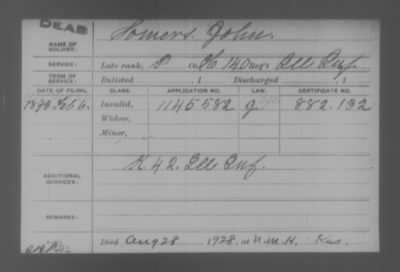 DEAD
NAME OF SOLDIER: Somers. John.
SERVICE: Late rank, P Co. 140 Reg't Ill Inf.
TERM OF SERVICE: Enlisted , 1 Discharged , 1
DATE OF FILING. CLASS. APPLICATION NO. LAW. CERTIFICATE NO.
1890. Feb 6. Invalid, 1145582 882.132
Widow,
Minor,
ADDITIONAL SERVICES: K 42. Ill Inf.
REMARKS:
Died Aug 28, 1928, at N.M.H. Kas.